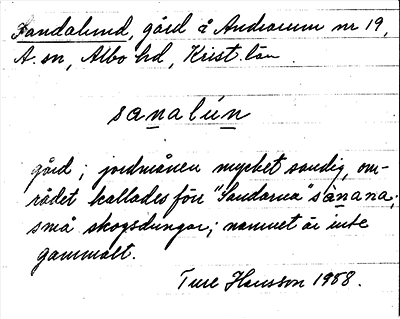 Sandalund, gård å Andrarum nr 19,
A. sn, Albo hd, Krist. län
sanalún
gård; jordmånen mycket sandig, om-
rådet kallades förr "Sandarna" sànana;
små skogsdungar; namnet är inte
gammalt.
Ture Hansson 1968.